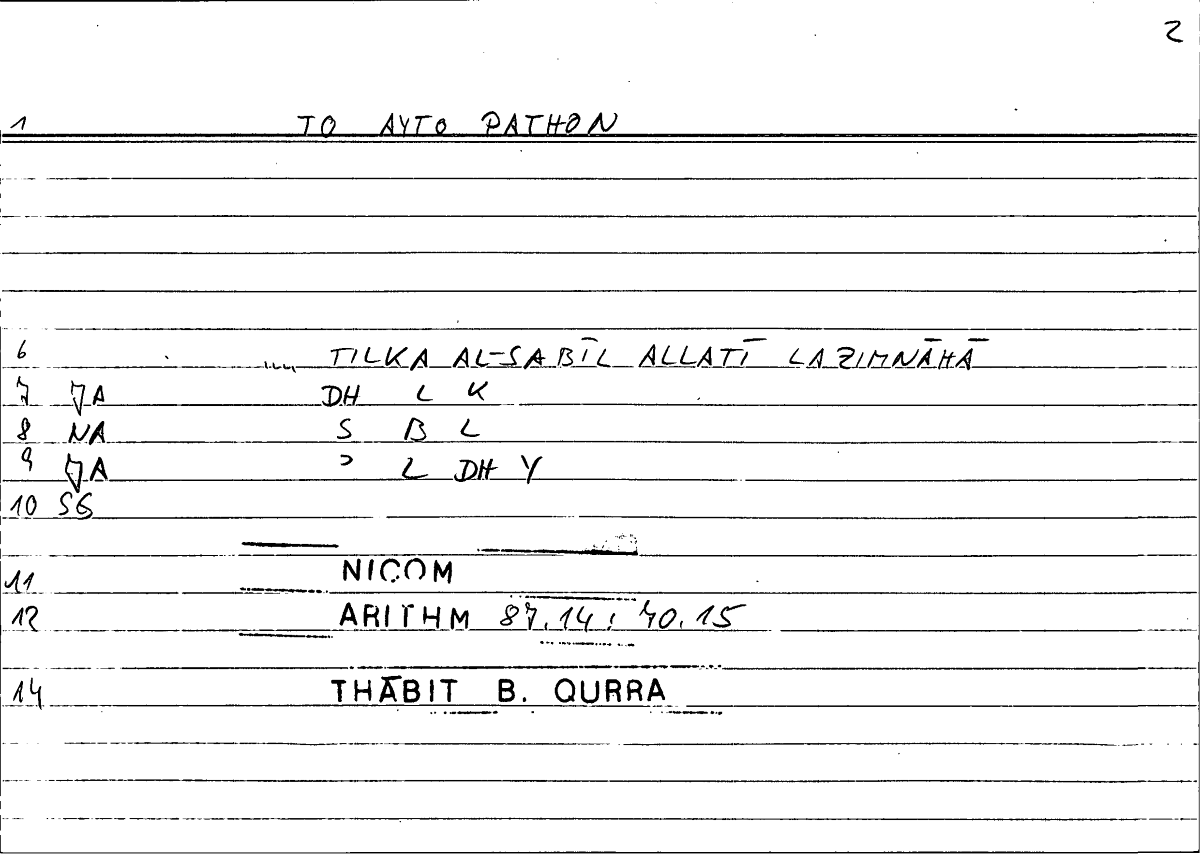 2
1 TO AYTO PATHON
6 ... TILKA AL-SABĪL ALLATĪ LAZIMNĀHĀ
7 JA DH L K
8 NA S B L
9 JA ʾ L DH Y
10 SG
11 NICOM
12 ARITHM 87.14 : 70.15
14 THĀBIT B. QURRA